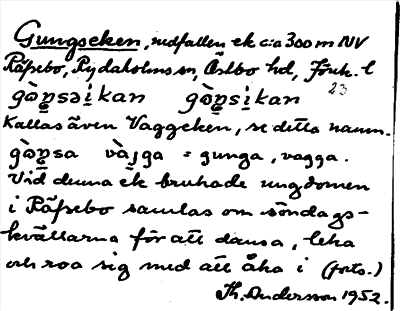 Gungseken, nedfallen ek c:a 300 m NV
Räfsebo, Rydaholms sn, Östbo hd, Jönk. l
gɷ̀ŋsəikan gɷ̀ŋsikan 23
Kallas även Vaggeken, se detta namn.
gɷ̀ŋsa vàjga = gunga, vagga.
Vid denna ek brukade ungdomen
i Räfsebo samlas om söndags-
kvällarna för att dansa, leka
och roa sig med att åka i (forts.)
Th. Andersson 1952.